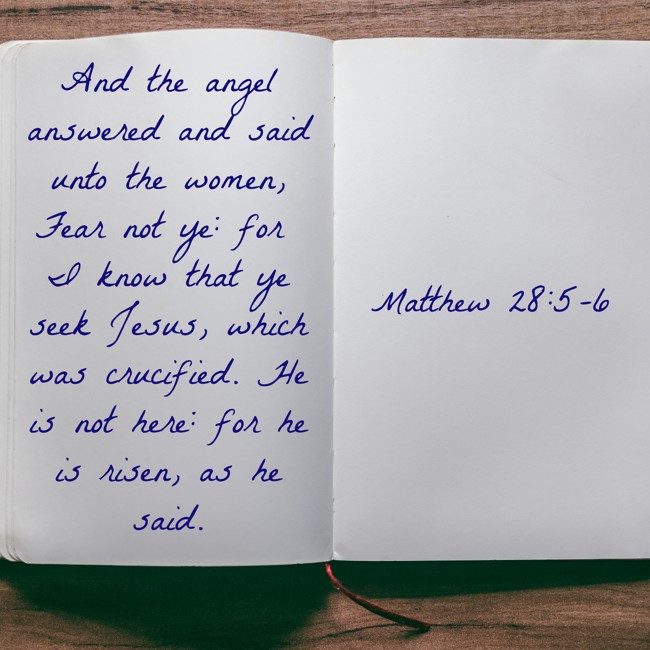 And the angel
answered and said
unto the women,
Fear not ye: for
I know that ye
seek Jesus, which
was crucified. He
is not here: for he
is risen, as he
said.
Matthew 28:5-6